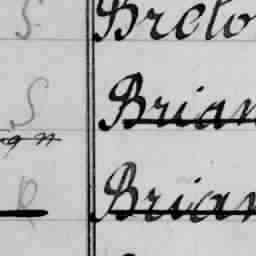 S. Breto
S Brian
R Brian